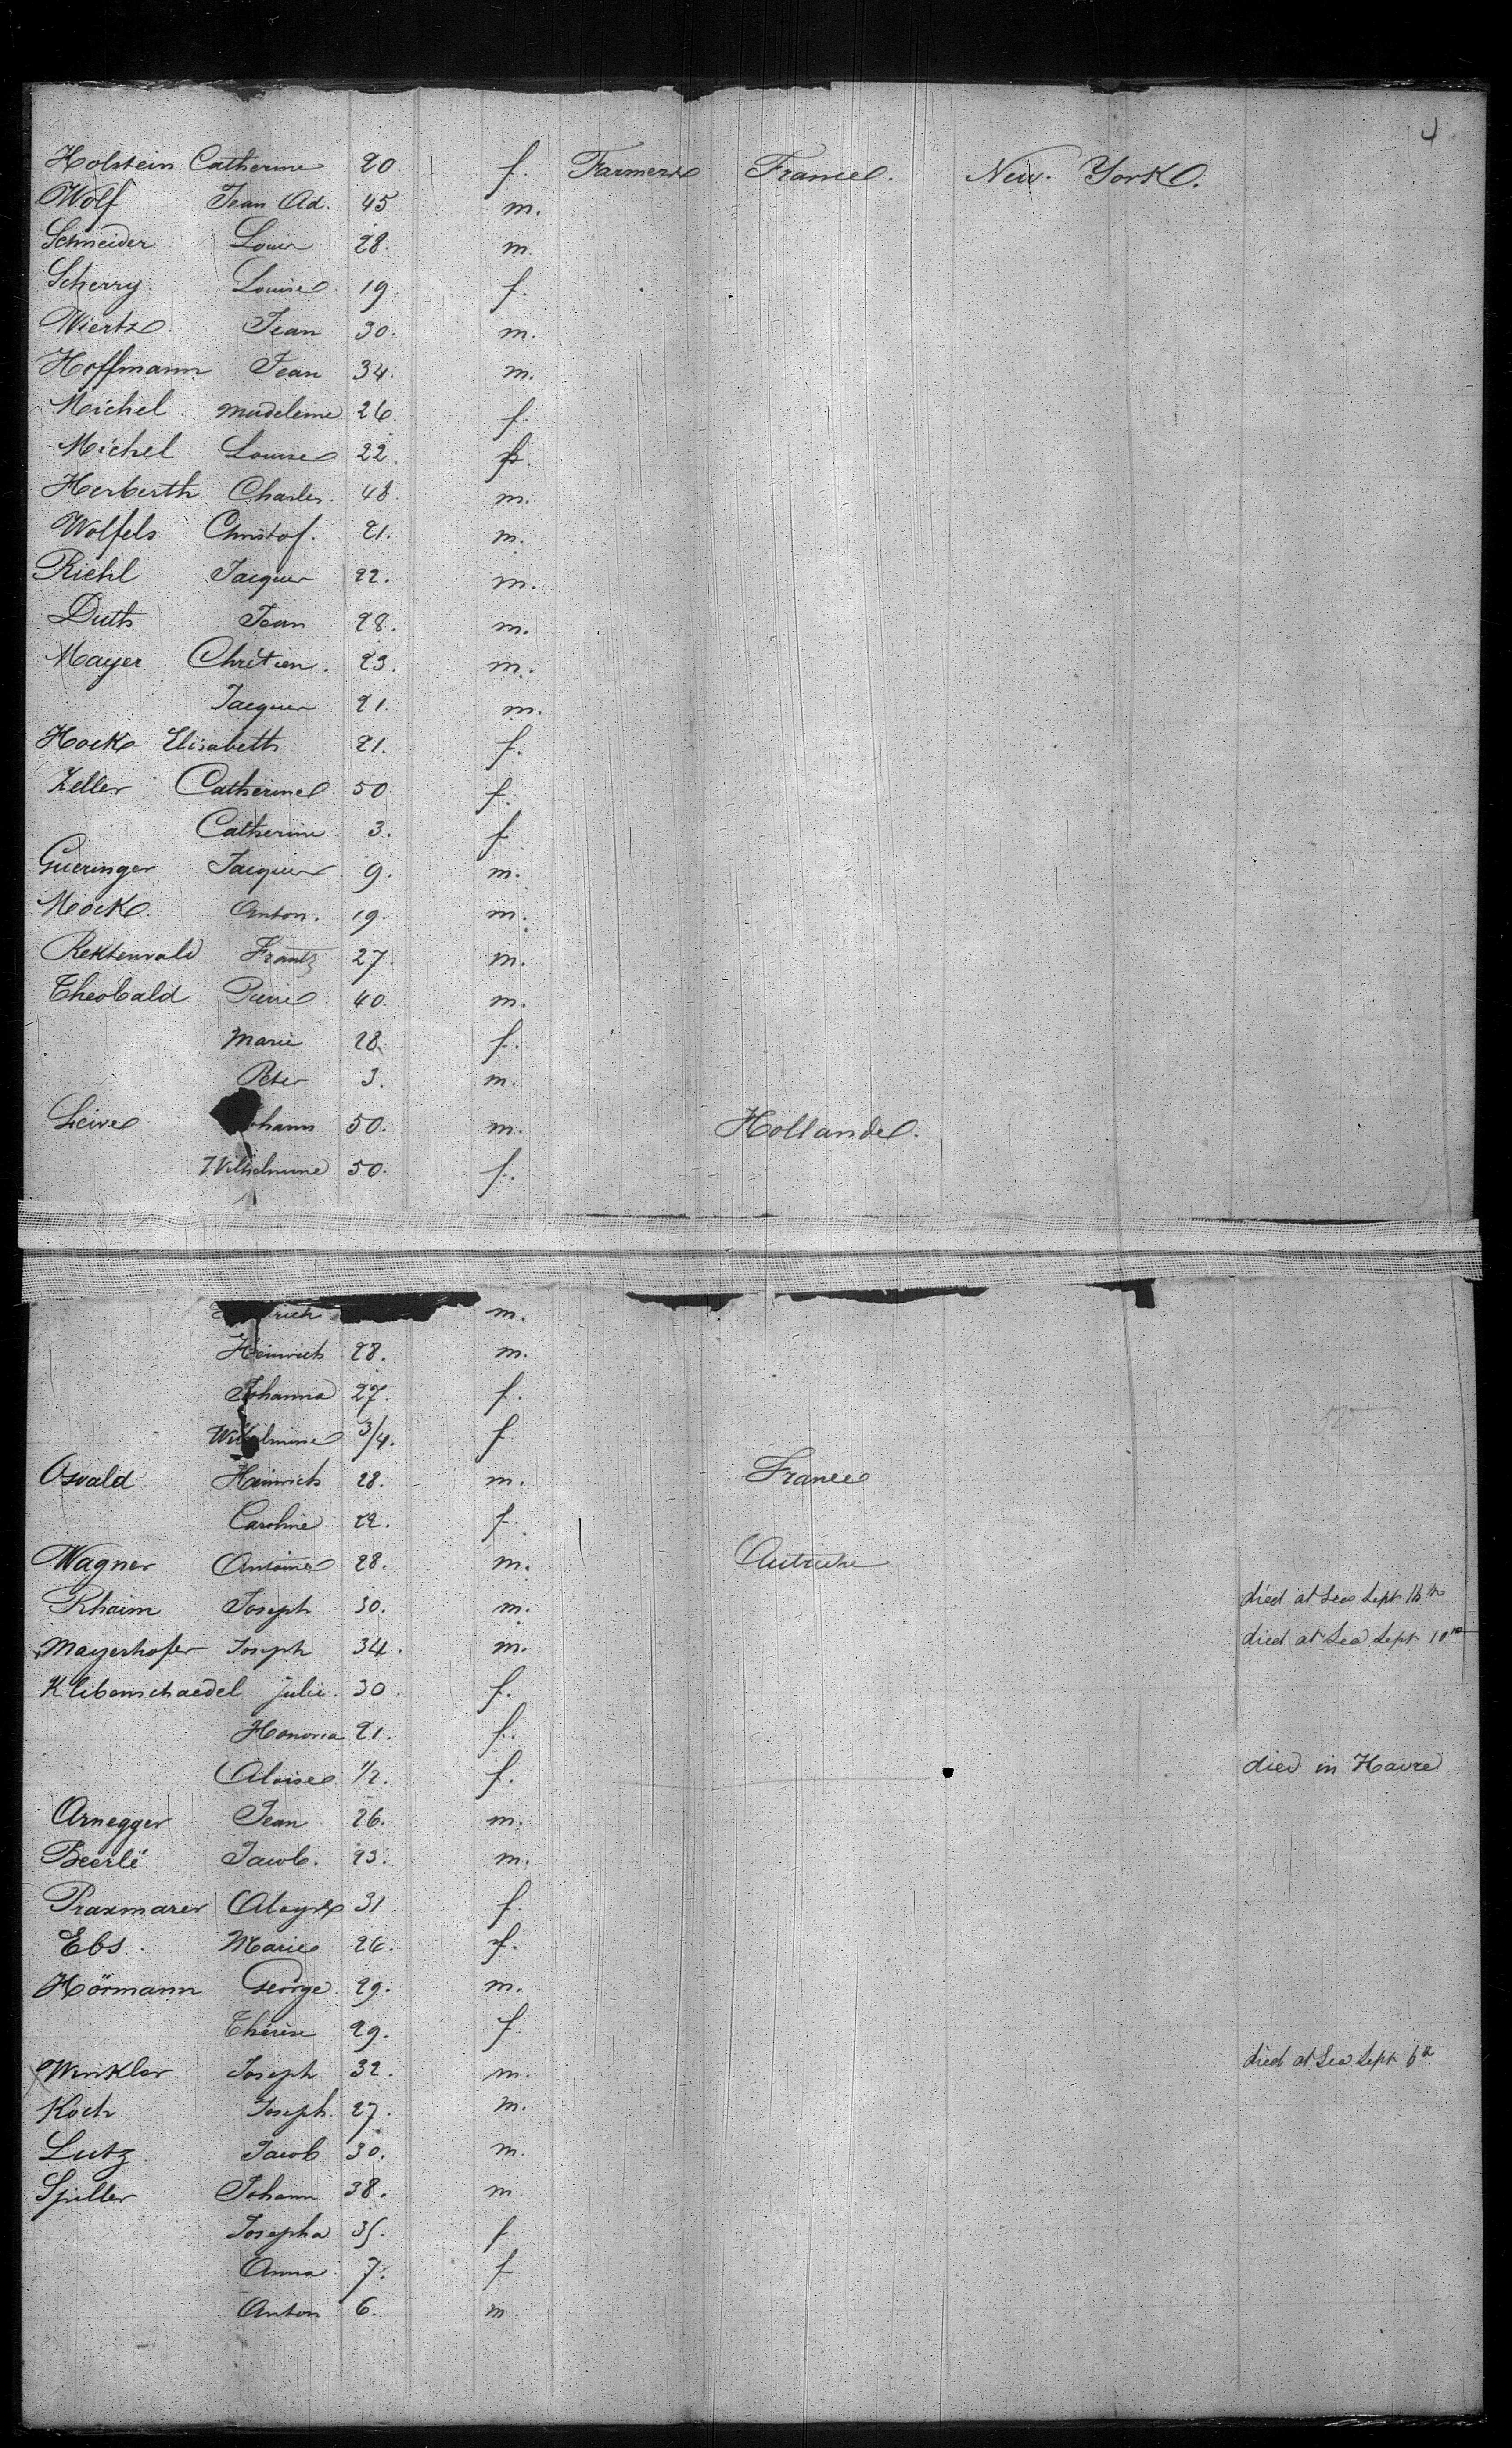 Holstein Catherine 20. f. Farmers France. New York.
Wolf Jean Ad. 45 m.
Schneider Louis 28. m.
Scherry Louise 19. f.
Wiertz Jean 30. m.
Hoffmann Jean 34. m.
Michel Madeleine 26. f.
Michel Louise 22. f.
Herberth Charles 48. m.
Wolfels Christof. 21. m.
Riehl Jacques 22. m.
Duth Jean 28. m.
Mayer Chrétien. 23. m.
Jacques 21. m.
Hock Elisabeth 21. f.
Zeller Catherine 50. f.
Catherine 3. f
Gueringer Jacques 9. m.
Mock Anton. 19. m.
Rektenvald Frantz 27. m.
Theobald Pierre 40. m.
Marie 28. f.
Peter 3. m.
hann 50. m. Hollande.
Wilhelmine 50. f.
rich m.
Heinrich 28. m.
Johanna 27. f.
Wilhelmine 3/4. f
Osvald Heinrich 28. m. France
Caroline 22. f.
Wagner Antoine 28. m. Autriche
Rhaim Joseph 30. m. died at Sea Sept
Mayerhofer Joseph 34. m. died at Sea Sept 10th
Klibenschaedel Julie. 30. f.
Honoria 21. f.
Aloise 1/2. f. died in Havre
Arnegger Jean 26. m.
Beerlé Jacob. 23. m.
Praxmarer Aloyse 31 f.
Ebs. Marie 26. f.
Hörmann George. 29. m.
Thérèse 29. f.
Winkler Joseph 32. m. died at Sea Sept 6th
Koch Joseph. 27. m.
Lutz Jacob 30. m.
Spiller Johann 38. m.
Josepha 35. f
Anna 7. f
Anton 6. m